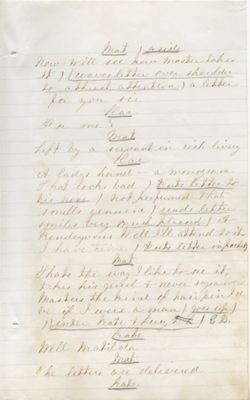 Mat (aside
Now will see how master takes
it) (waves letter over shoulder
to attract attention) a letter
for you sir
Har
For me!
Mat
Left by a servant in rich livery
Har
A ladys hand — a monogram
That looks bad) (Puts letter to
his nose) not perfumed that
smells genuine) (reads letter
smiles very much pleased) A
Rendezvous Well Ill attend to it
I have time) (Puts letter in pocket)
Mat
Thats the way I like to see it,
takes his and never
Masters the kind of I'd
be if I were a man) (goes up)
(Enter Kate & Lucy) E.D.
Kate
Well Matilda
Mat
The letters are delivered
Kate